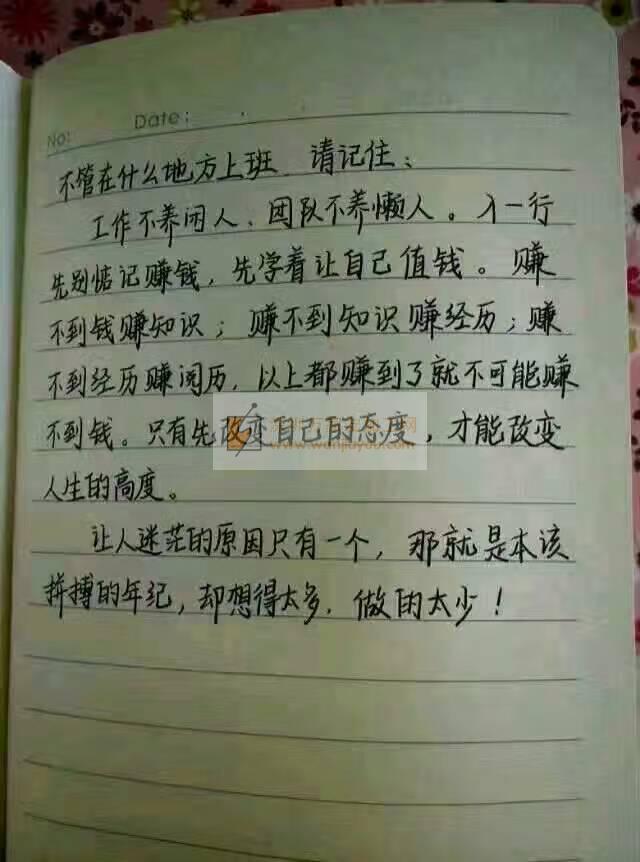 No:
Date:
不管在什么地方上班 请记住：
工作不养闲人、团队不养懒人。入一行
先别惦记赚钱，先学着让自己值钱。赚
不到钱赚知识；赚不到知识赚经历；赚
不到经历赚阅历．以上都赚到了就不可能赚
不到钱。只有先改变自己的态度，才能改变
人生的高度。
让人迷茫的原因只有一个，那就是本该
拼搏的年纪，却想得太多．做的太少！